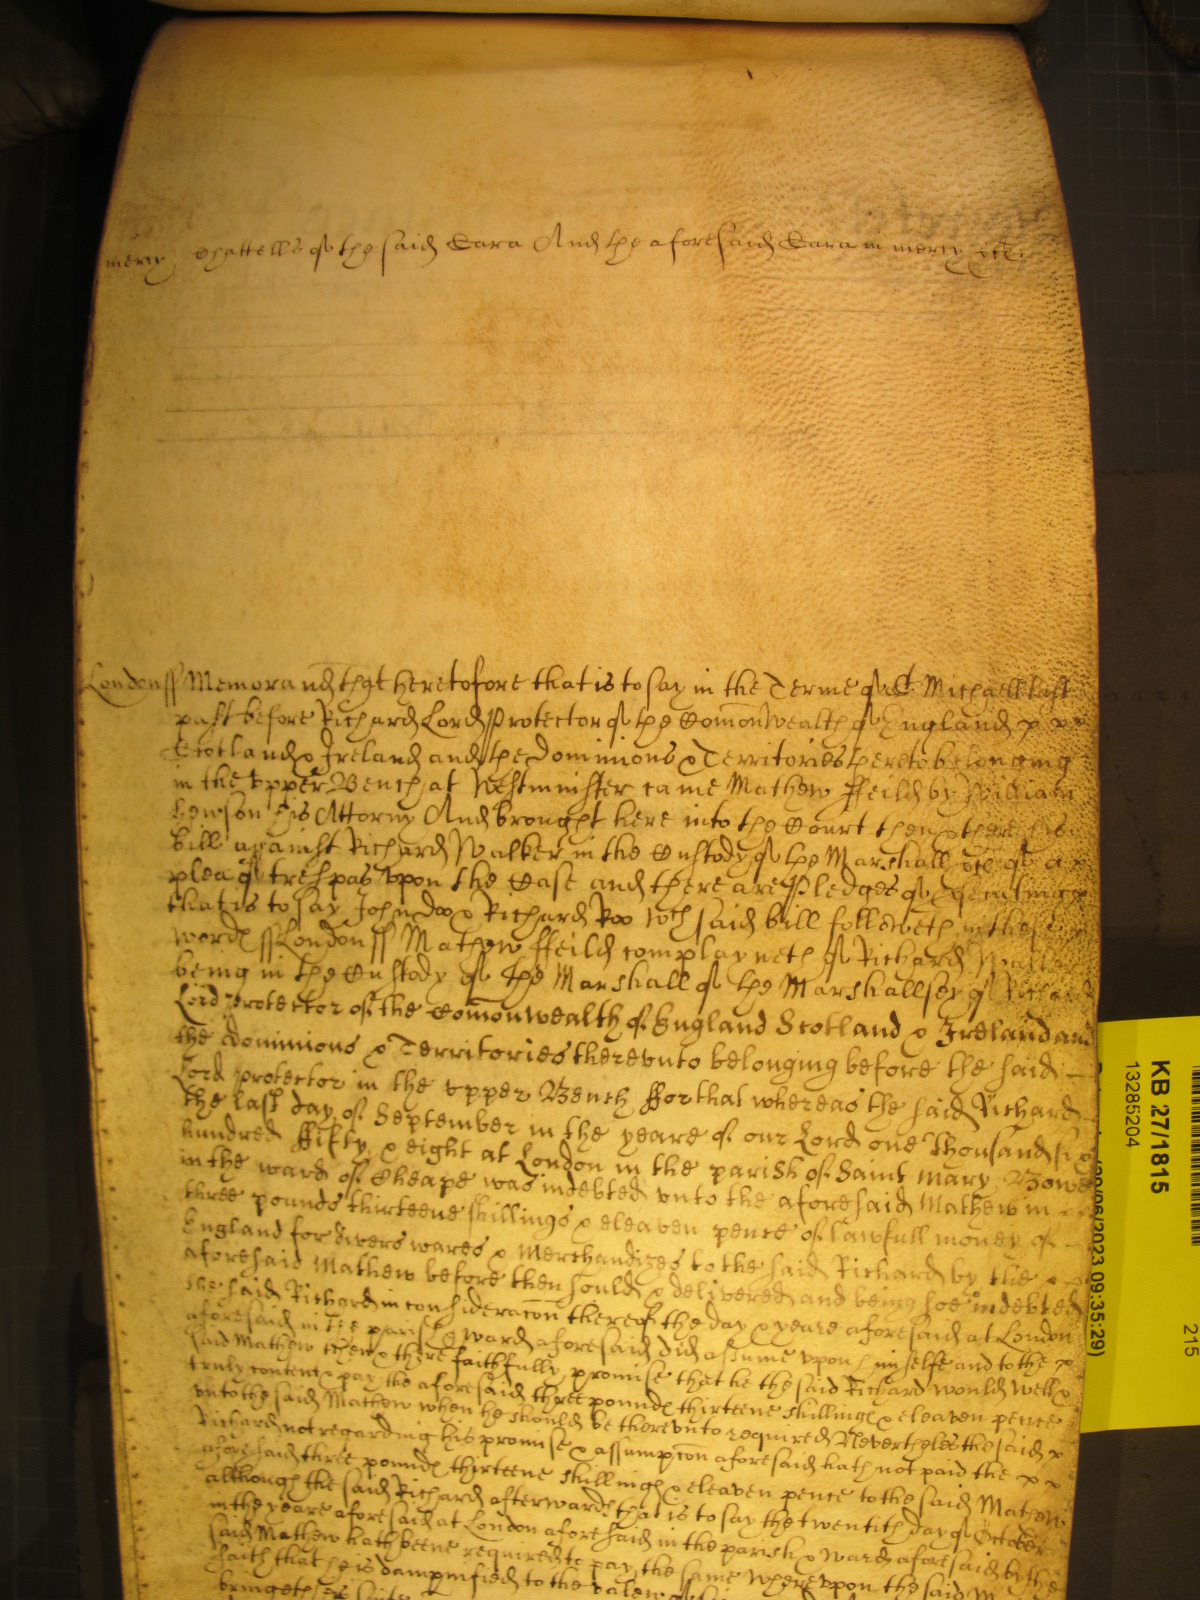 mercy Chattells of the said Sara And the aforesaid Sara in mercy etc.
London ss Memorand that heretofore that is to say in the Terme of St Michaell last
past before Richard Lord Protector of the Comonwealth of England x x x
Scotland & Ireland and the Dominions & Territories thereto belonging
in the upper Bench at Westminster came Mathew ffeild by William
Hewson his Attorny And brought here into the Court then & there his
bill against Richard Walker in the Custody of the Marshall etc of a
plea of trespas upon the Case and there are Pledges of
that is to say John Doo & Richard Roo wch said bill followeth in these
words ss London ss Mathew ffeild complayneth of Richard Walker
being in the Custody of the Marshall of the Marshallsey of Richard
Lord protector of the Comonwealth of England Scotland & Ireland and
the Dominions & Territories therevnto belonging before the said
Lord protector in the vpper Bench ffor that whereas the said Richard
the last day of September in the yeare of our Lord one Thousand six
hundred ffifty & eight at London in the parish of Saint Mary Bowe
in the ward of Cheape was indebted vnto the aforesaid Mathew in
three pounds thirteene shillings & eleaven pence of lawfull money of
England for divers wares & Merchandizes to the said Richard by the x x
aforesaid Mathew before then sould & delivered and being soe indebted
the said Richard in consideracon thereof the day & yeare aforesaid at London
aforesaid in the parish & ward aforesaid did assume vpon himselfe and to the x
said Mathew then & there faithfully promise that he the said Richard would well &
truly content & pay the aforesaid three pounds thirteene shillings & eleaven pence
vnto the said Mathew when he should be therevnto required Neverthelesse the said x
Richard not regarding his promise & assumpcon aforesaid hath not paid the x x
aforesaid three pounds thirteene shillings & eleaven pence to the said Mathew
although the said Richard afterwards that is to say the twentith day of October
in the yeare aforesaid at London aforesaid in the parish & ward aforesaid by the
said Mathew hath beene required to pay the same wherevpon the said
saith that he is dampnified to the valew of
bringeth
KB 27/1815
13285204
215
/06/2023 09:35:29)